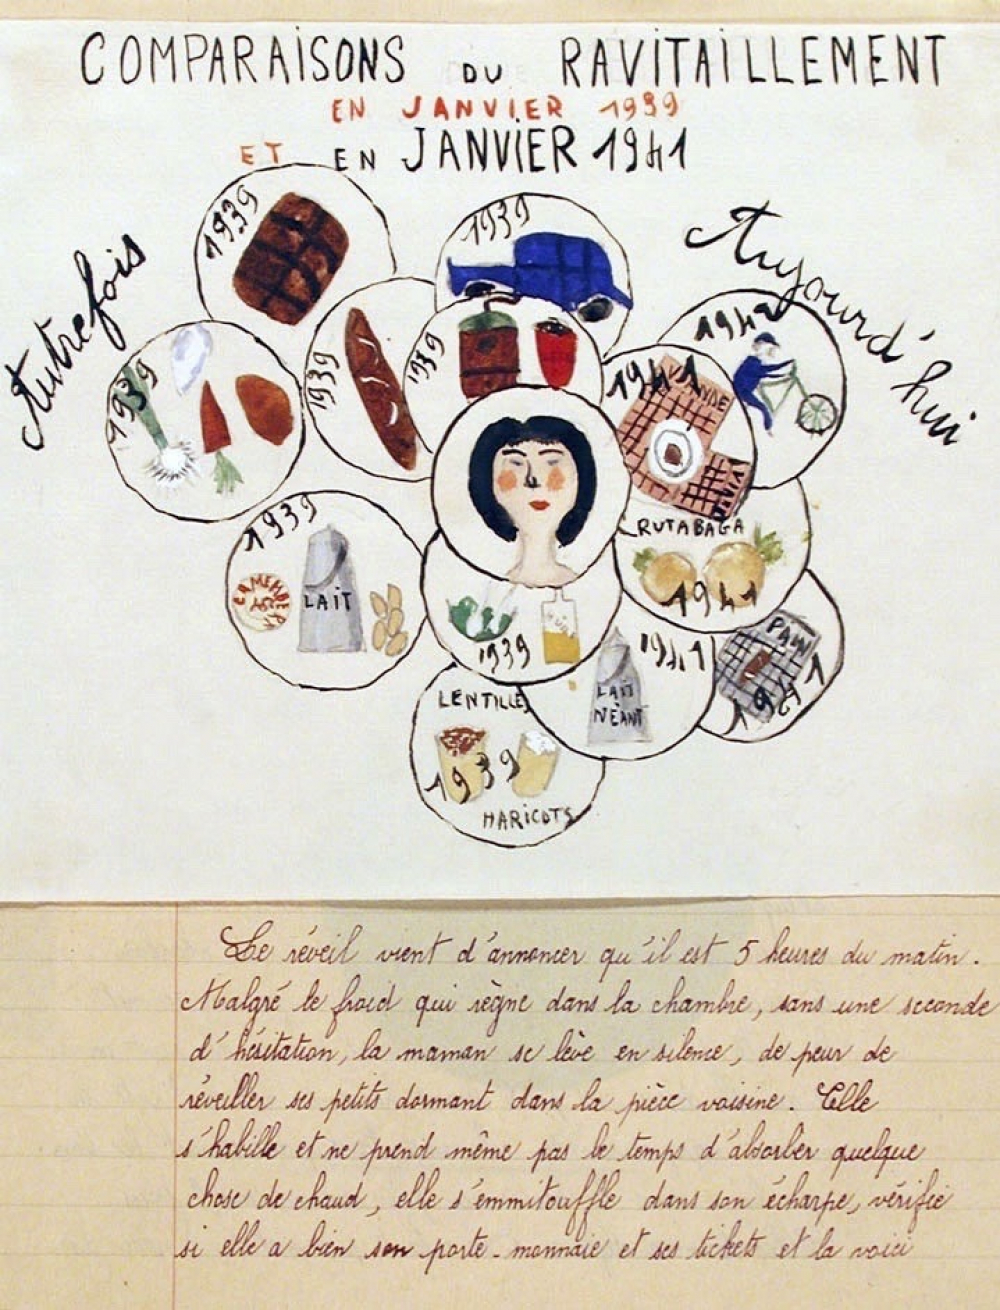 COMPARAISONS DU RAVITAILLEMENT
EN JANVIER 1939
ET EN JANVIER 1941
Autrefois
Aujourd'hui
1939
1939
1942
1939
1939
1939
1941
VIANDE
1939
CAMEMBERT
LAIT
RUTABAGA
1941
HUILE
1939
1941
LAIT
NÉANT
PAIN
1941
LENTILLES
1939
HARICOTS
Le réveil vient d'annoncer qu'il est 5 heures du matin.
Malgré le froid qui règne dans la chambre, sans une seconde
d'hésitation, la maman se lève en silence, de peur de
réveiller ses petits dormant dans la pièce voisine. Elle
s'habille et ne prend même pas le temps d'absorber quelque
chose de chaud, elle s'emmitouffle dans son écharpe, vérifie
si elle a bien son porte-monnaie et ses tickets et la voici